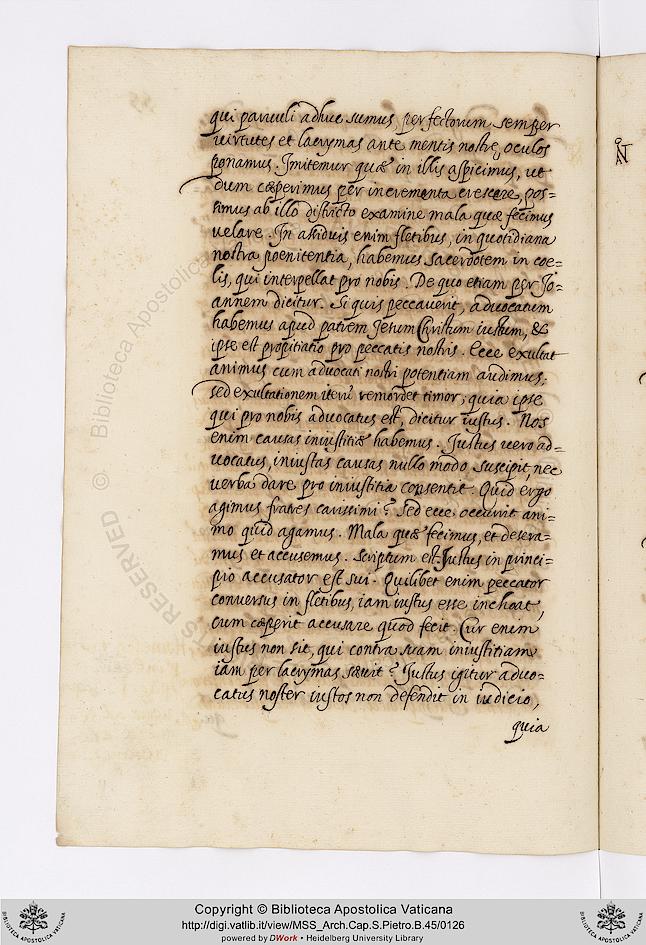 qui parvuli adhuc sumus perfectorum semper
virtutes et lacrymas ante mentis nostre, oculos
ponamus. Imitemur quæ in illis aspicimus, ut
dum cœperimus per incrementa crescere, pos=
simus ab illo districto examine mala quæ fecimus
velare. In assiduis enim fletibus, in quotidiana
nostra poenitentia, habemus sacerdotem in coe=
lis, qui interpellat pro nobis. De quo etiam per Jo=
annem dicitur. Si quis peccaverit, advocatum
habemus apud patrem Jesum Christum iustum, &
ipse est propitiatio pro peccatis nostris. Ecce exultat
animus cum advocati nostri potentiam audimus.
sed exultationem iterū remordet timor; quia ipse
qui pro nobis advocatus est, dicitur iustus. Nos
enim causas iniustitiæ habemus. Justus vero ad=
vocatus, iniustas causas nullo modo suscipit, nec
verba dare pro iniustitia consentit. Quid ergo
agimus fratres carissimi? Sed ecce occurrit ani=
mo quid agamus. Mala quæ fecimus, et desera=
mus et accusemus. Scriptum est. Justus in princi=
pio accusator est sui. Quilibet enim peccator
conversus in fletibus, iam iustus esse inchoat,
cum cœperit accusare quod fecit. Cur enim
iustus non sit, qui contra suam iniustitiam
iam per lacrymas sævit? Justus igitur advo=
catus noster iustos non defendit in iudicio,
quia
Biblioteca Apostolica
©
RESERVED
Copyright © Biblioteca Apostolica Vaticana
http://digi.vatlib.it/view/MSS_Arch.Cap.S.Pietro.B.45/0126
powered by DWork • Heidelberg University Library